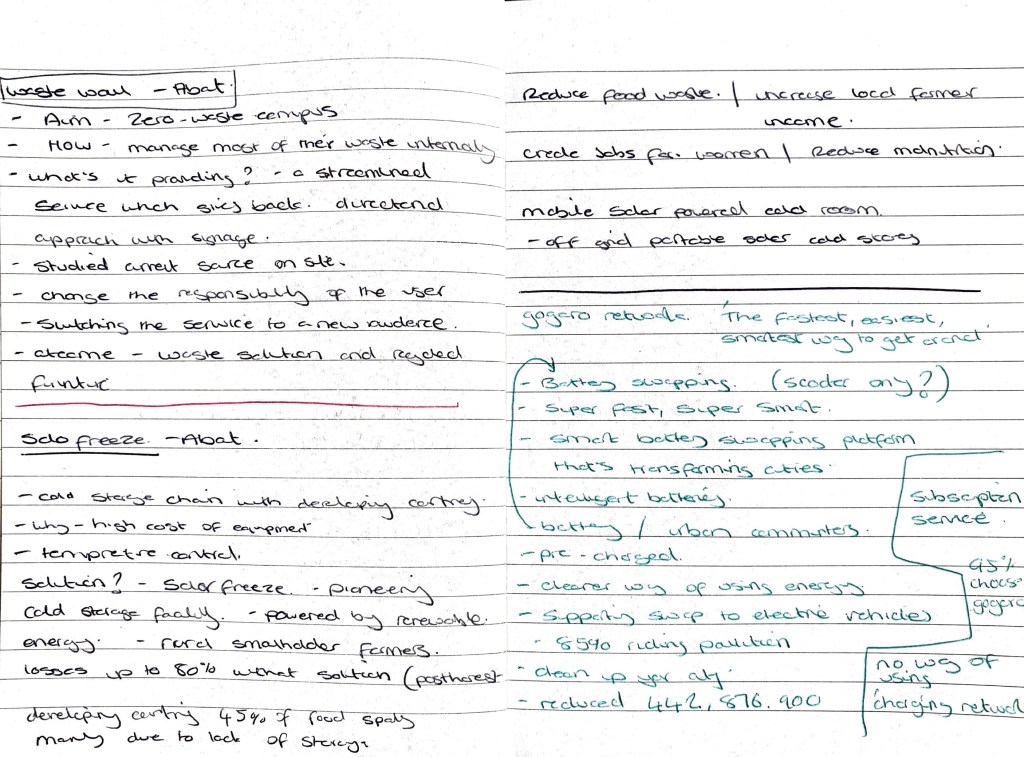 Waste wall - Abat.
- Aim - Zero-waste campus
- How - manage most of their waste internally
- what's it providing? - a streamlined
service which gives back.
approach with signage.
- studied current source on site.
- change the responsibility of the user
- Switching the service to a new audience.
- outcome - waste solution and recycled
furniture
Solo freeze. - Abat.
- cold storage chain with developing contries.
- why - high cost of equipment
- tempreture control.
solution? - Solar freeze. - pioneering
cold storage facility. - powered by renewable.
energy. - rural smallholder farmers.
losses up to 80% without solution (postharvest
developing contries 45% of food spoils
mainly due to lack of storage.
Reduce food waste. | increase local farmer
income.
create Jobs for. women | Reduce malnutrition.
mobile solar powered cold room.
- off grid portable solar cold storage
gogoro network. The fastest, easiest,
smartest way to get around
- Battery swapping. (scooter only?)
- super fast, super smart.
- smart battery swapping platform
that's transforming cities.
- intelligent batteries.
- battery / urban commuters.
- pre-charged.
- cleaner way of using energy.
- supporting swap to electric vehicles
- 85% riding pollution
- clean up your city.
- reduced 442,876.900
subscription
service.
95%
choose
gogoro
no way of
using
charging network